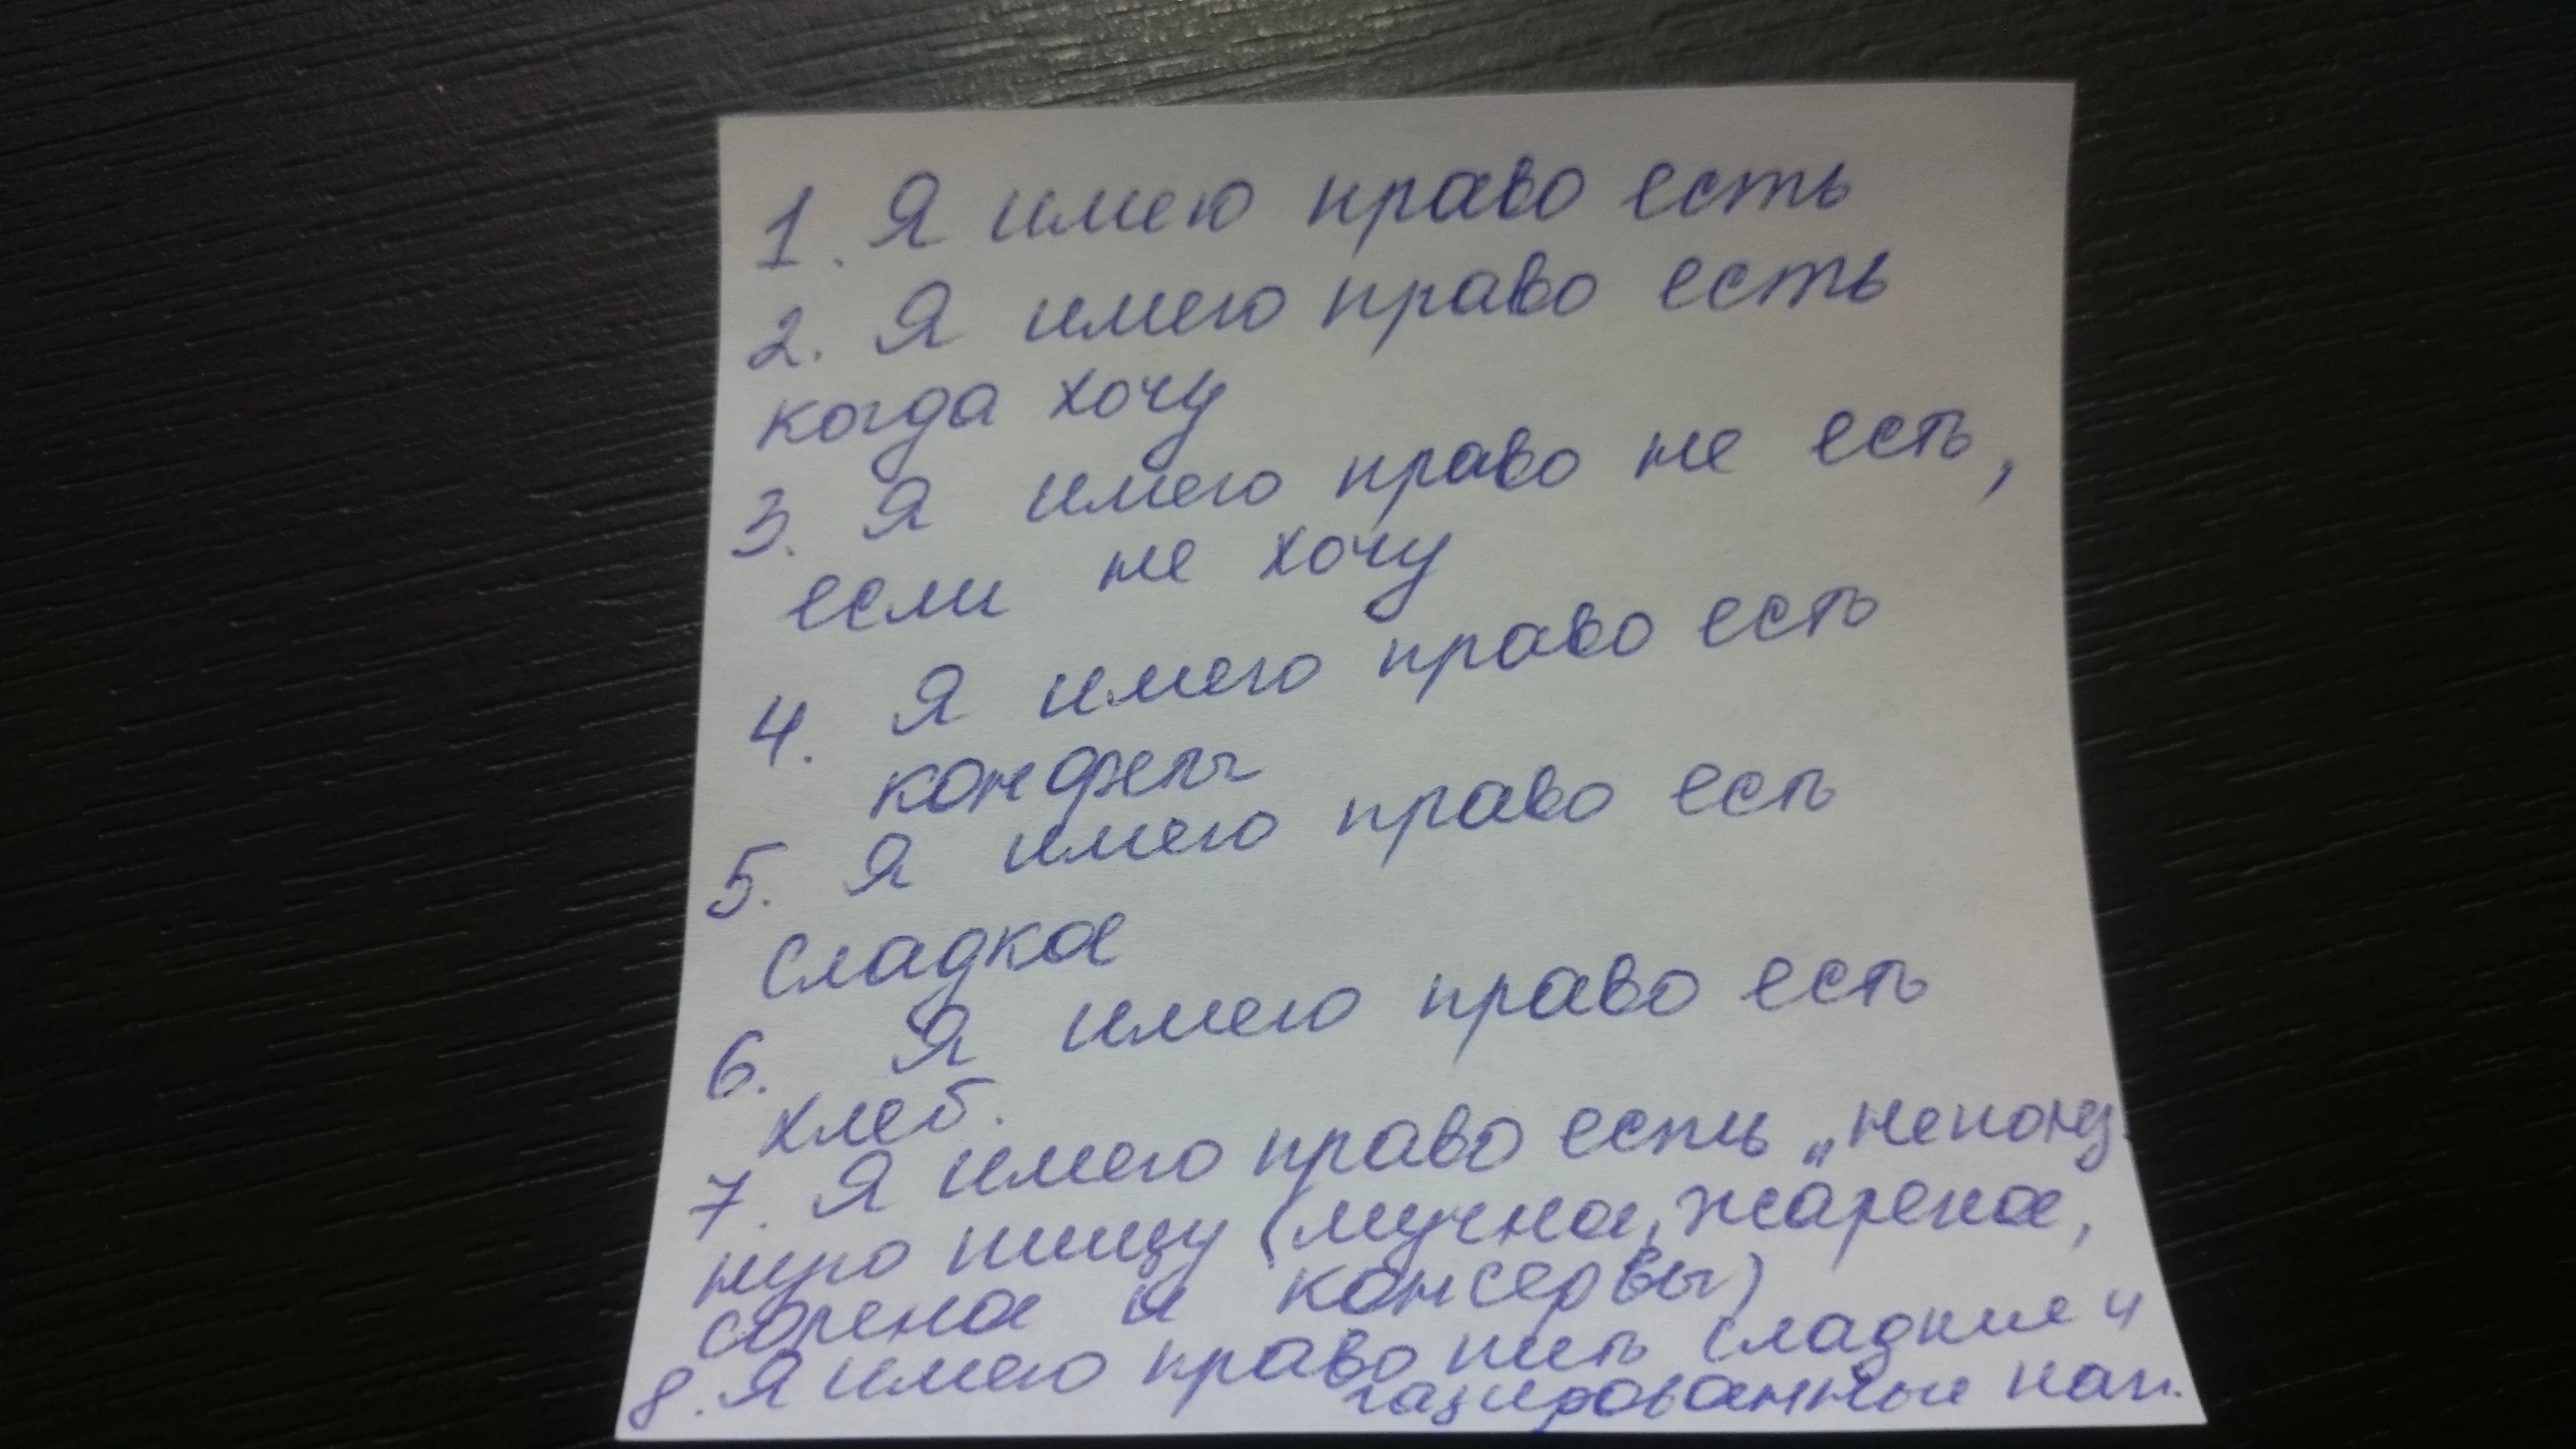 1. Я имею право есть
2. Я имею право есть
когда хочу
3. Я имею право не есть,
если не хочу
4. Я имею право есть
конфеты
5. Я имею право есть
сладкое
6. Я имею право есть
хлеб.
7. Я имею право есть „неполез
ную пищу (мучное, жареное,
соленое и консервы)
8. Я имею право пить сладкие и
газированные нап.